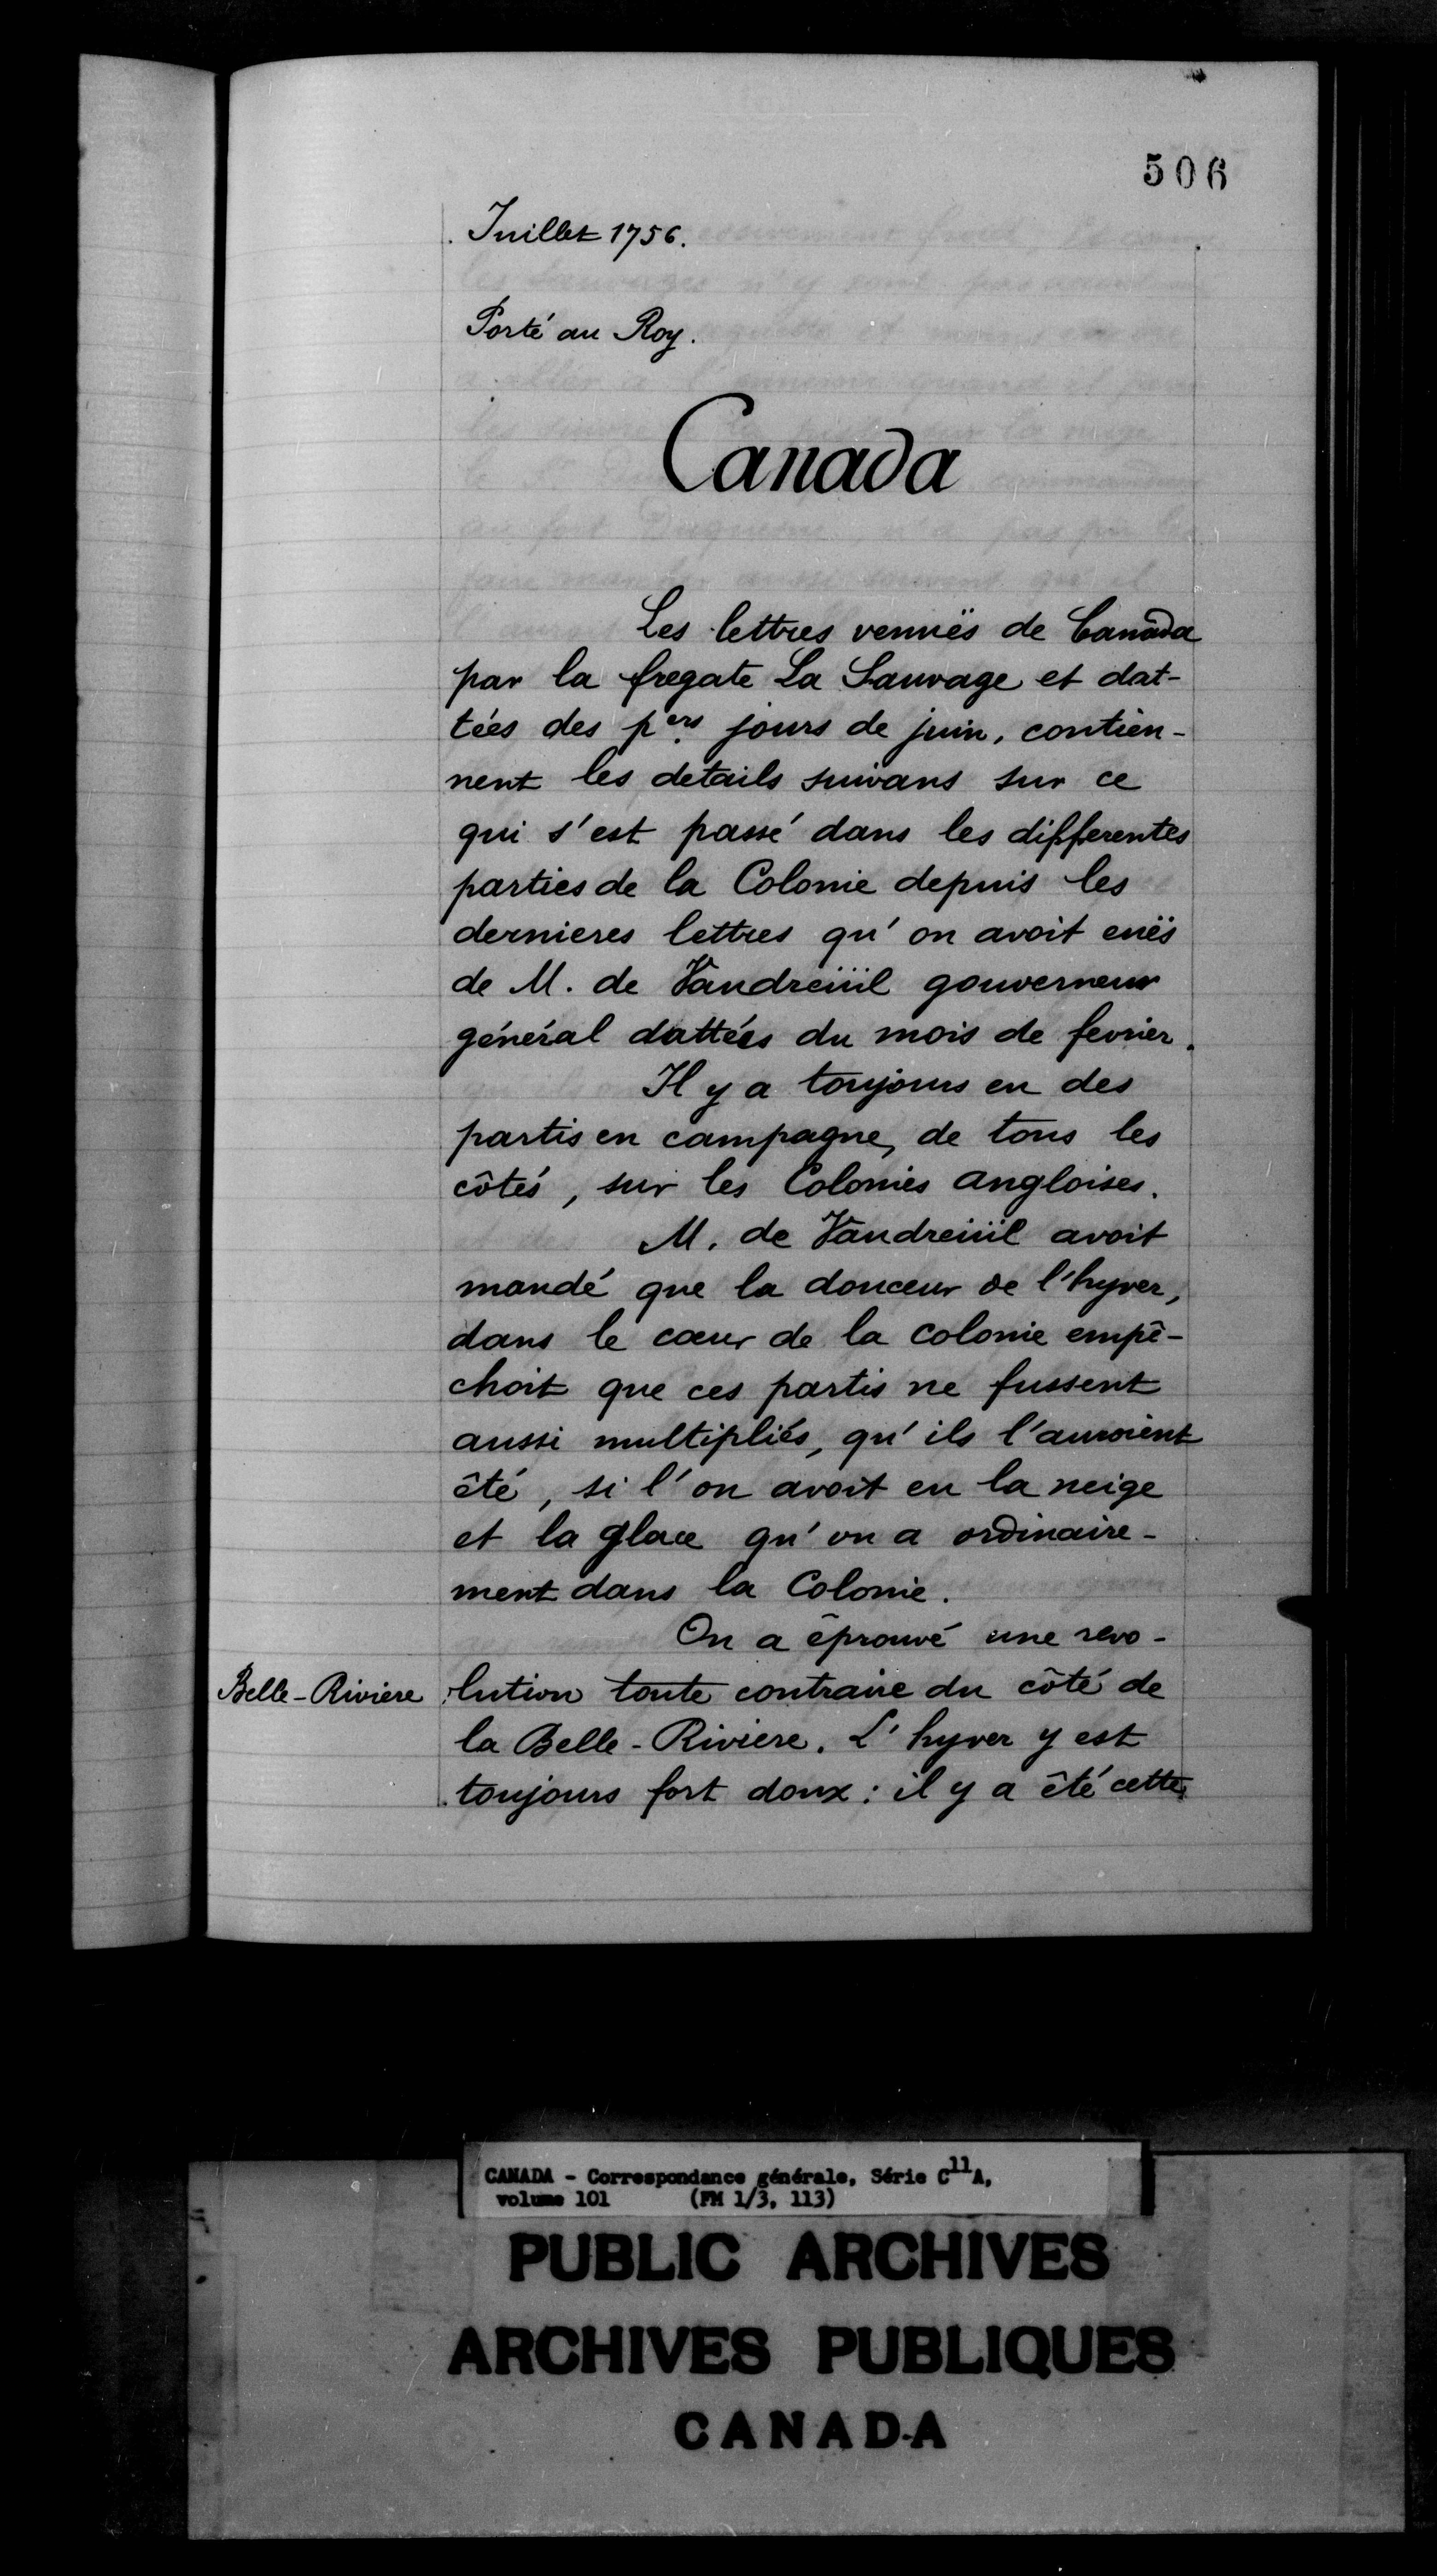 506
Juillet 1756.
Porté au Roy.
Canada
Les lettres venuës de Canada
par la fregate La Sauvage et dat-
tées des p.ers jours de juin, contien-
nent les details suivans sur ce
qui s'est passé dans les differentes
parties de la Colonie depuis les
dernieres lettres qu'on avoit euës
de M. de Vaudreüil gouverneur
général dattées du mois de fevrier.
Il y a toujours eu des
partis en campagne, de tous les
côtés, sur les Colonies angloises.
M. de Vaudreüil avoit
mandé que la douceur de l'hyver,
dans le cœur de la colonie empê-
choit que ces partis ne fussent
aussi multipliés, qu'ils l'auroient
êté, si l'on avoit eu la neige
et la glace qu'on a ordinaire-
ment dans la Colonie.
On a êprouvé une revo-
Belle-Riviere lution toute contraire du côté de
la Belle-Riviere. L'hyver y est
toujours fort doux: il y a êté cette
CANADA - Correspondance générale, Série C11A,
volume 101 (FM 1/3, 113)
PUBLIC ARCHIVES
ARCHIVES PUBLIQUES
CANADA